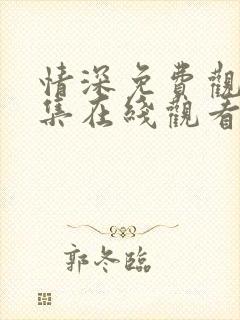 情深免費觀
集在綫觀看
郭冬臨